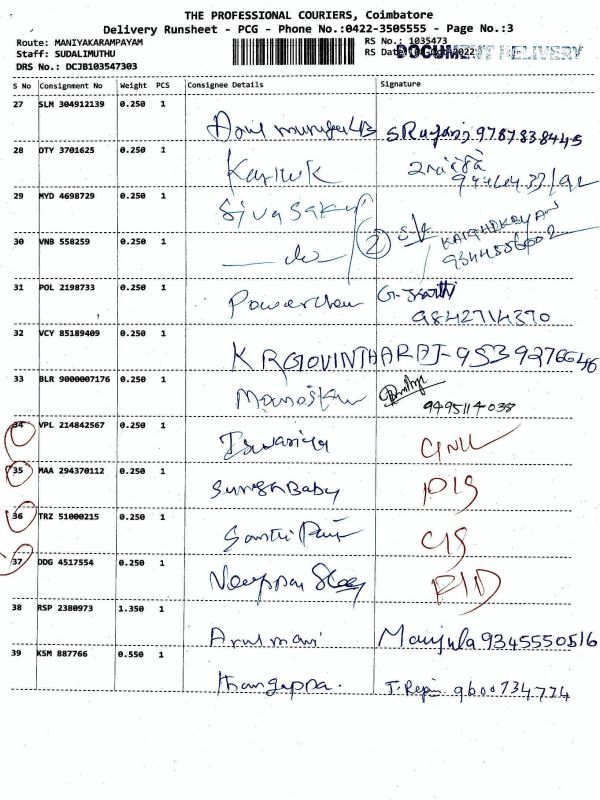 THE PROFESSIONAL COURIERS, Coimbatore
Delivery Runsheet - PCG - Phone No.:0422-3505555 - Page No.:3
Route: MANIYAKARAMPAYAM
RS No.: 1035473
Staff: SUDALIMUTHU
RS Date 2022
DOCUMENT DELIVERY
DRS No.: DCJB103547303
S No Consignment No Weight PCS Consignee Details Signature
27 SLM 304912139 0.250 1 S Rajani 9787838445
28 DTY 3701625 0.250 1 Karthik
29 MYD 4698729 0.250 1 Sivasakthi
30 VNB 558259 0.250 1 do 2 KARTHIKEYAN
31 POL 2198733 0.250 1 9842714370
32 VCY 85189409 0.250 1 K R GOVINTHARAJ - 9539276646
33 BLR 9000007176 0.250 1 9495114038
34 VPL 214842567 0.250 1 Iswariya
35 MAA 294370112 0.250 1 Suresh Baby
36 TRZ 51000215 0.250 1
37 DDG 4517554 0.250 1
38 RSP 2380973 1.350 1 Arulmani Manjula 9345550516
39 KSM 887766 0.550 1 thangappa. 9600734774